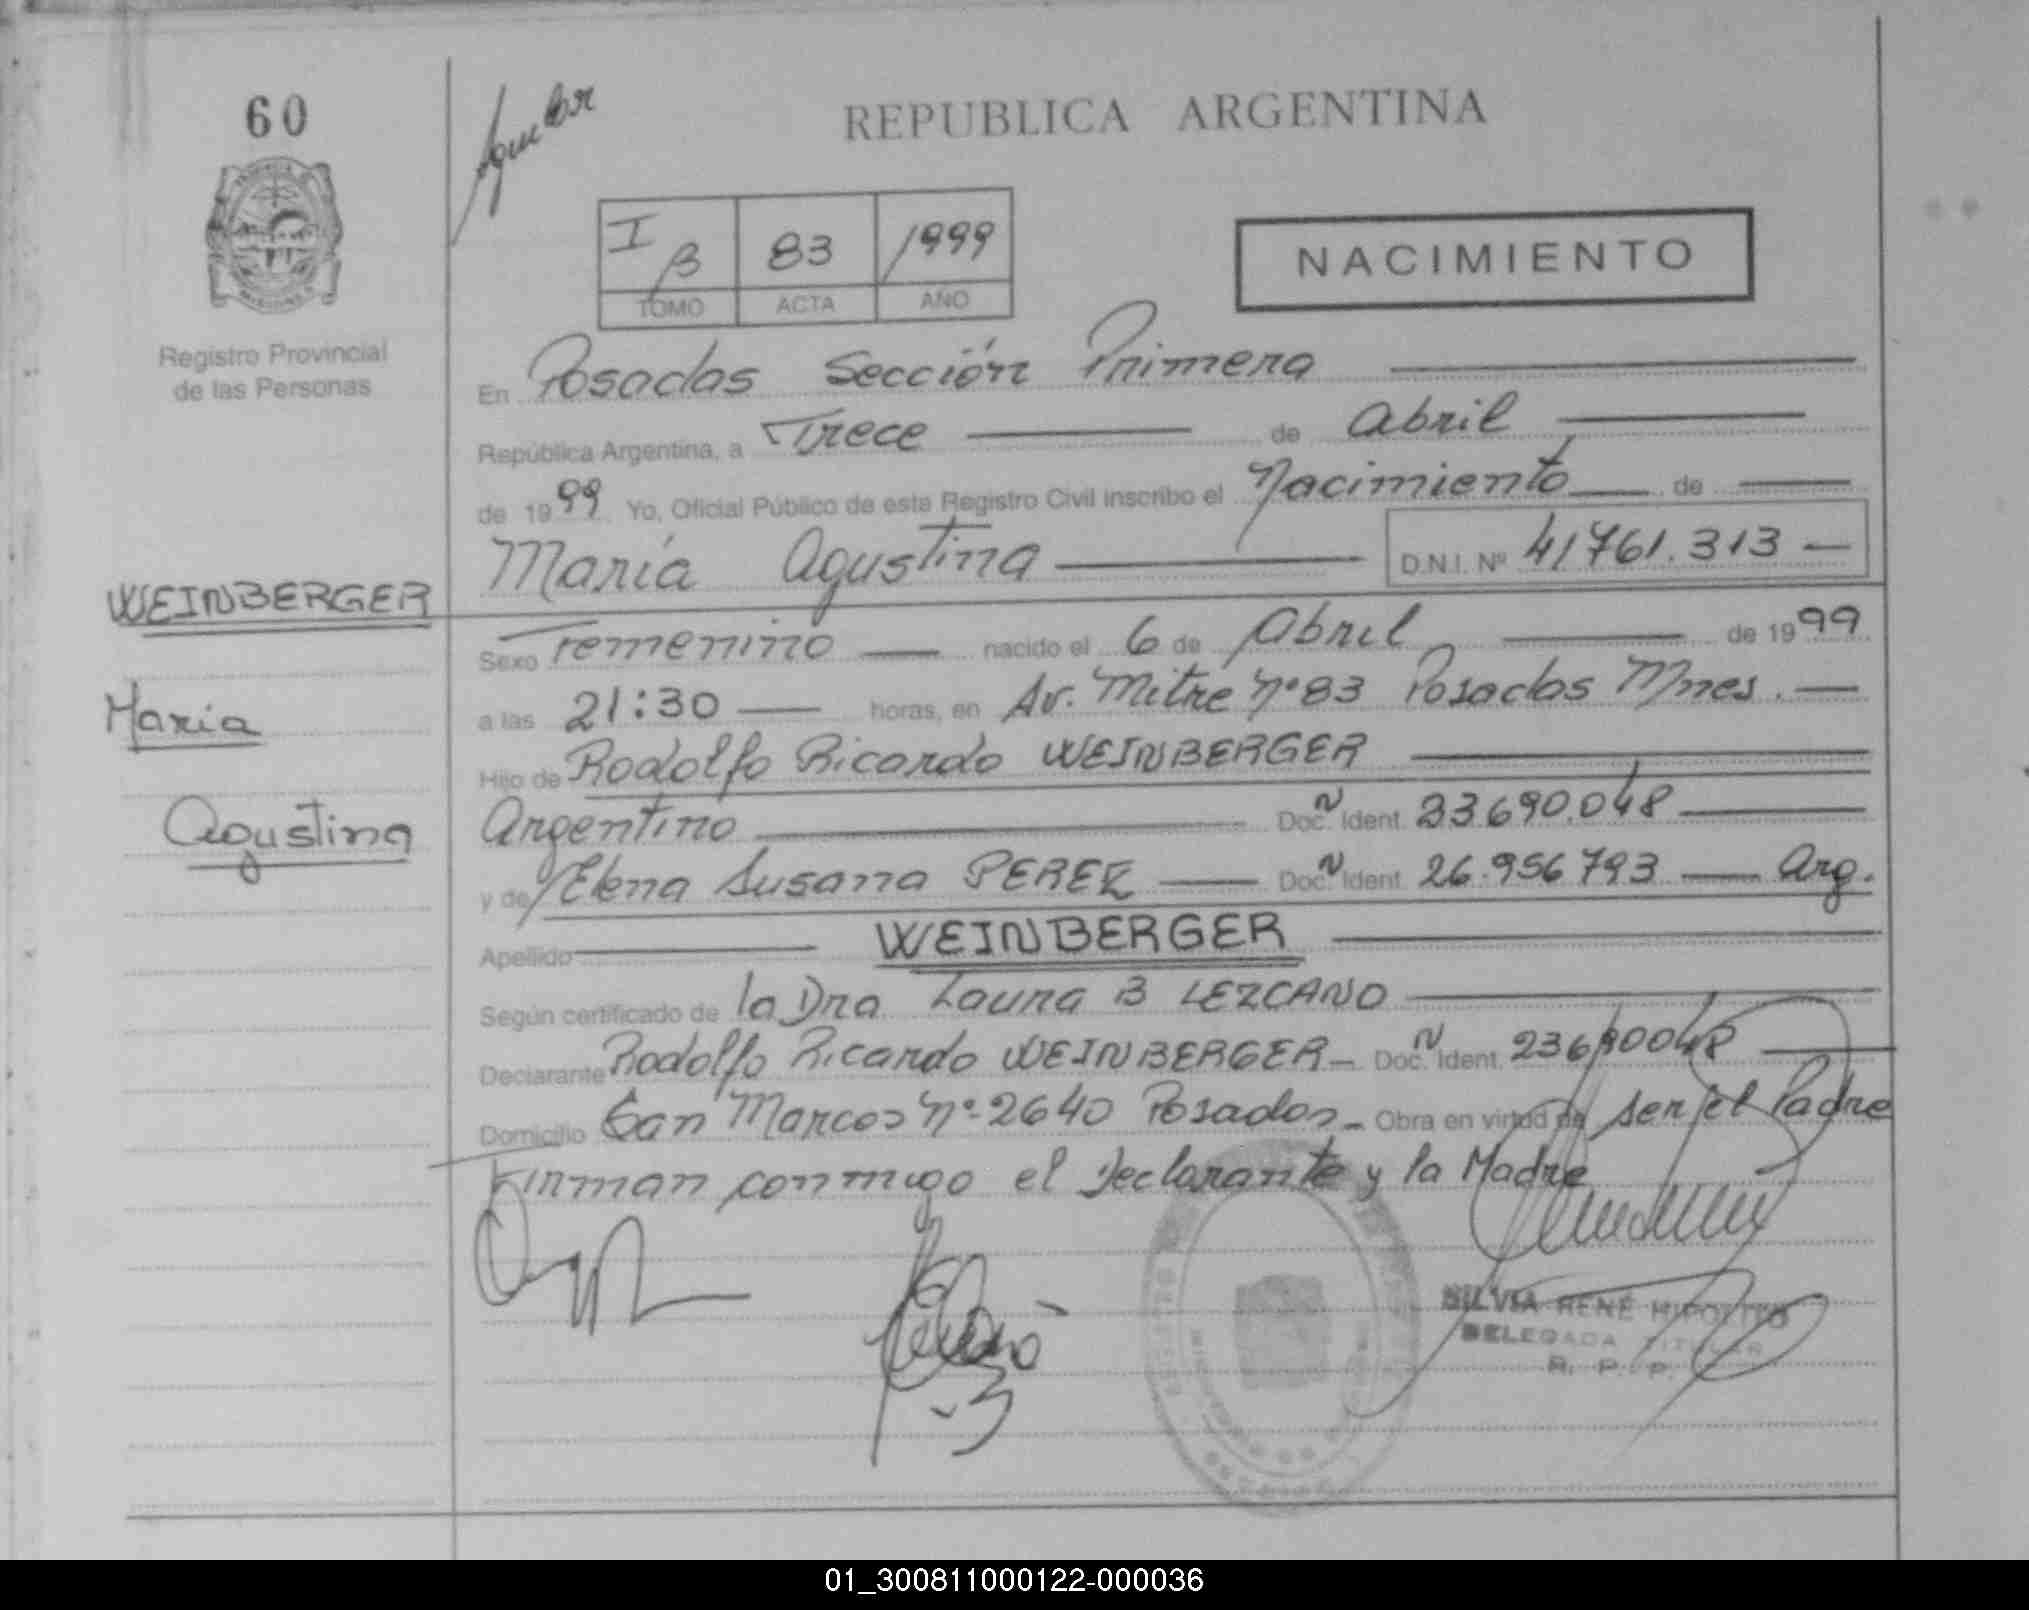 60
REPUBLICA ARGENTINA
I B 83 1999
TOMO ACTA AÑO
NACIMIENTO
Registro Provincial
de las Personas
En Posadas Sección Primera
República Argentina, a Trece de Abril
de 1999 Yo, Oficial Público de este Registro Civil inscribo el Nacimiento de
María Agustina D.N.I. Nº 41761.313
WEINBERGER
María
Agustina
Sexo Femenino nacido el 6 de Abril de 1999
a las 21:30 horas, en Av. Mitre Nº 83 Posadas Mnes.
Hijo de Rodolfo Ricardo WEINBERGER
Argentino Doc. Ident. 23.690.048
y de Elena Susana PEREZ Doc. Ident. 26.956793 Arg.
Apellido WEINBERGER
Según certificado de la Dra Laura B LEZCANO
Declarante Rodolfo Ricardo WEINBERGER Doc. Ident. 23690048
Domicilio San Marcos Nº 2640 Posadas Obra en virtud de Ser el Padre
Firman conmigo el Declarante y la Madre
SILVIA RENÉ HIPOLITO
DELEGADA TITULAR
R. P. P.
01_300811000122-000036